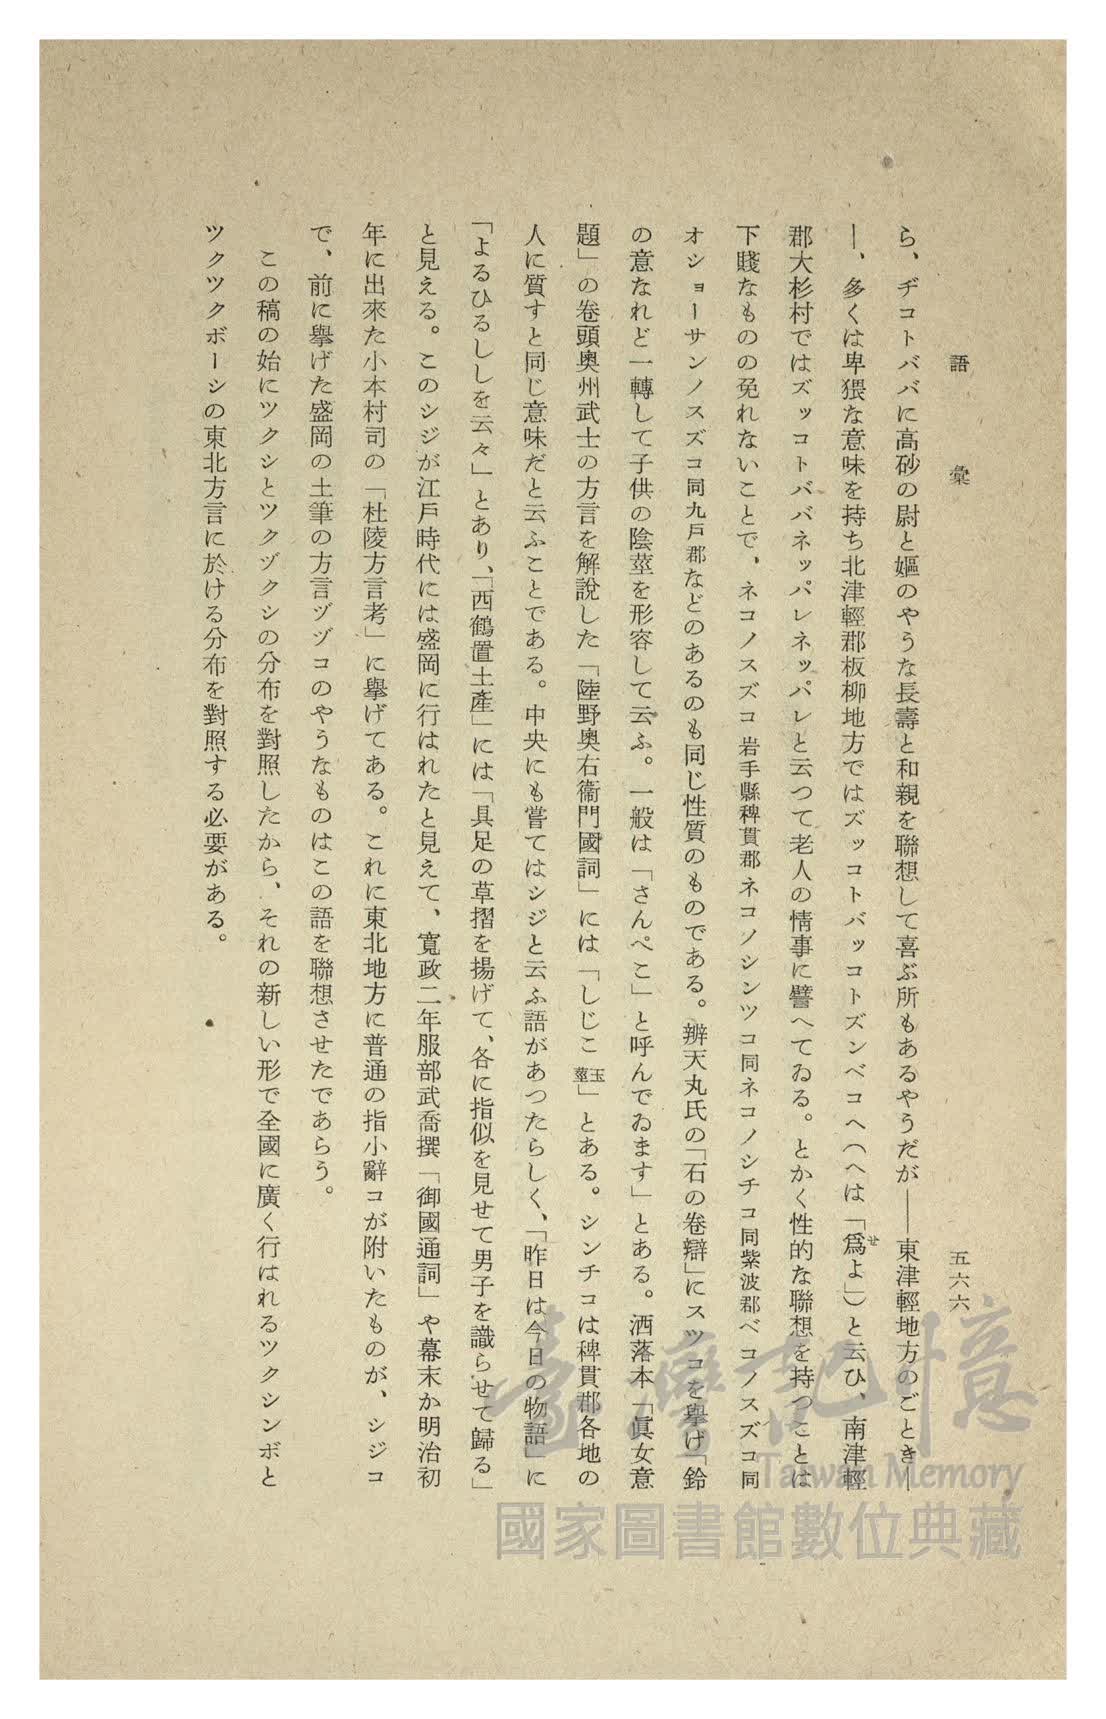 語彙
五六六
ら、ヂコトババに高砂の尉と嫗のやうな長壽と和親を聯想して喜ぶ所もあるやうだが――東津輕地方のごとき―
―、多くは卑猥な意味を持ち北津輕郡板柳地方ではズッコトバッコトズンベコヘ(ヘは「爲よ」)と云ひ、南津輕
郡大杉村ではズッコトババネッパレネッパレと云つて老人の情事に譬へてゐる。とかく性的な聯想を持つことは
下賤なものの免れないことで、ネコノスズコ岩手縣稗貫郡ネコノシンツコ同ネコノシチコ同紫波郡ベコノスズコ同
オショーサンノスズコ同九戸郡などのあるのも同じ性質のものである。辨天丸氏の「石の卷辯」にスツコを擧げ「鈴
の意なれど一轉して子供の陰莖を形容して云ふ。一般は「さんぺこ」と呼んでゐます」とある。洒落本「眞女意
題」の卷頭奧州武士の方言を解説した「陸野奧右衞門國詞」には「しじこ玉莖」とある。シンチコは稗貫郡各地の
人に質すと同じ意味だと云ふことである。中央にも嘗てはシジと云ふ語があつたらしく、「昨日は今日の物語」に
「よるひるししを云々」とあり、「西鶴置土產」には「具足の草摺を揚げて、各に指似を見せて男子を識らせて歸る」
と見える。このシジが江戸時代には盛岡に行はれたと見えて、寬政二年服部武喬撰「御國通詞」や幕末か明治初
年に出來た小本村司の「杜陵方言考」に擧げてある。これに東北地方に普通の指小辭コが附いたものが、シジコ
で、前に擧げた盛岡の土筆の方言ヅヅコのやうなものはこの語を聯想させたであらう。
この稿の始にツクシとツクヅクシの分布を對照したから、それの新しい形で全國に廣く行はれるツクシンボと
ツクツクボーシの東北方言に於ける分布を對照する必要がある。
せ
臺灣記憶
Taiwan Memory
國家圖書館數位典藏